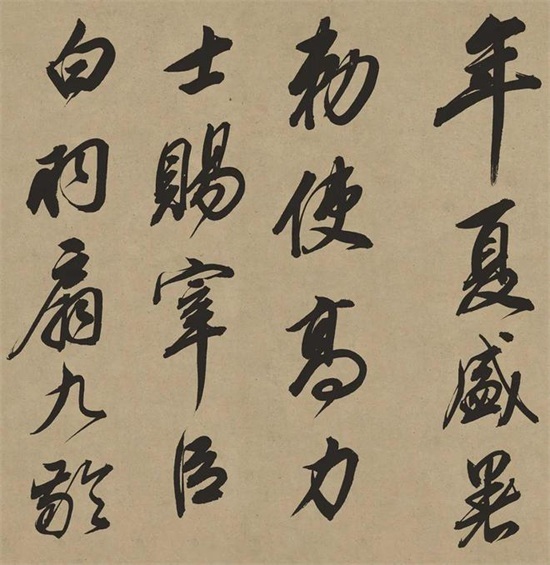 年夏盛暑
勅使高力
士賜宰臣
白羽扇九齡